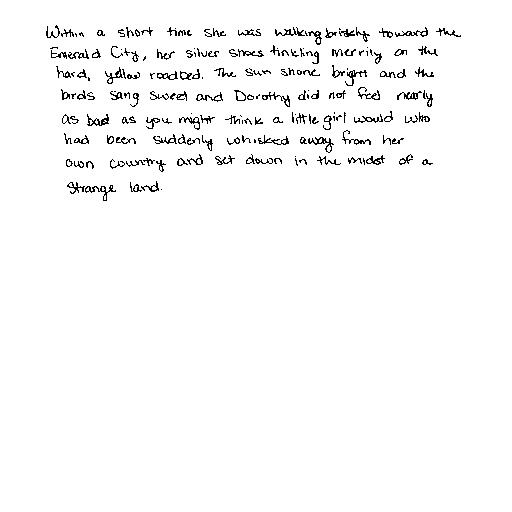 Within a short time she was walking briskly toward the
Emerald City, her silver shoes tinkling merrily on the
hard, yellow roadbed. The sun shone bright and the
birds sang sweet and Dorothy did not feel nearly
as bad as you might think a little girl would who
had been suddenly whisked away from her
own country and set down in the midst of a
strange land.